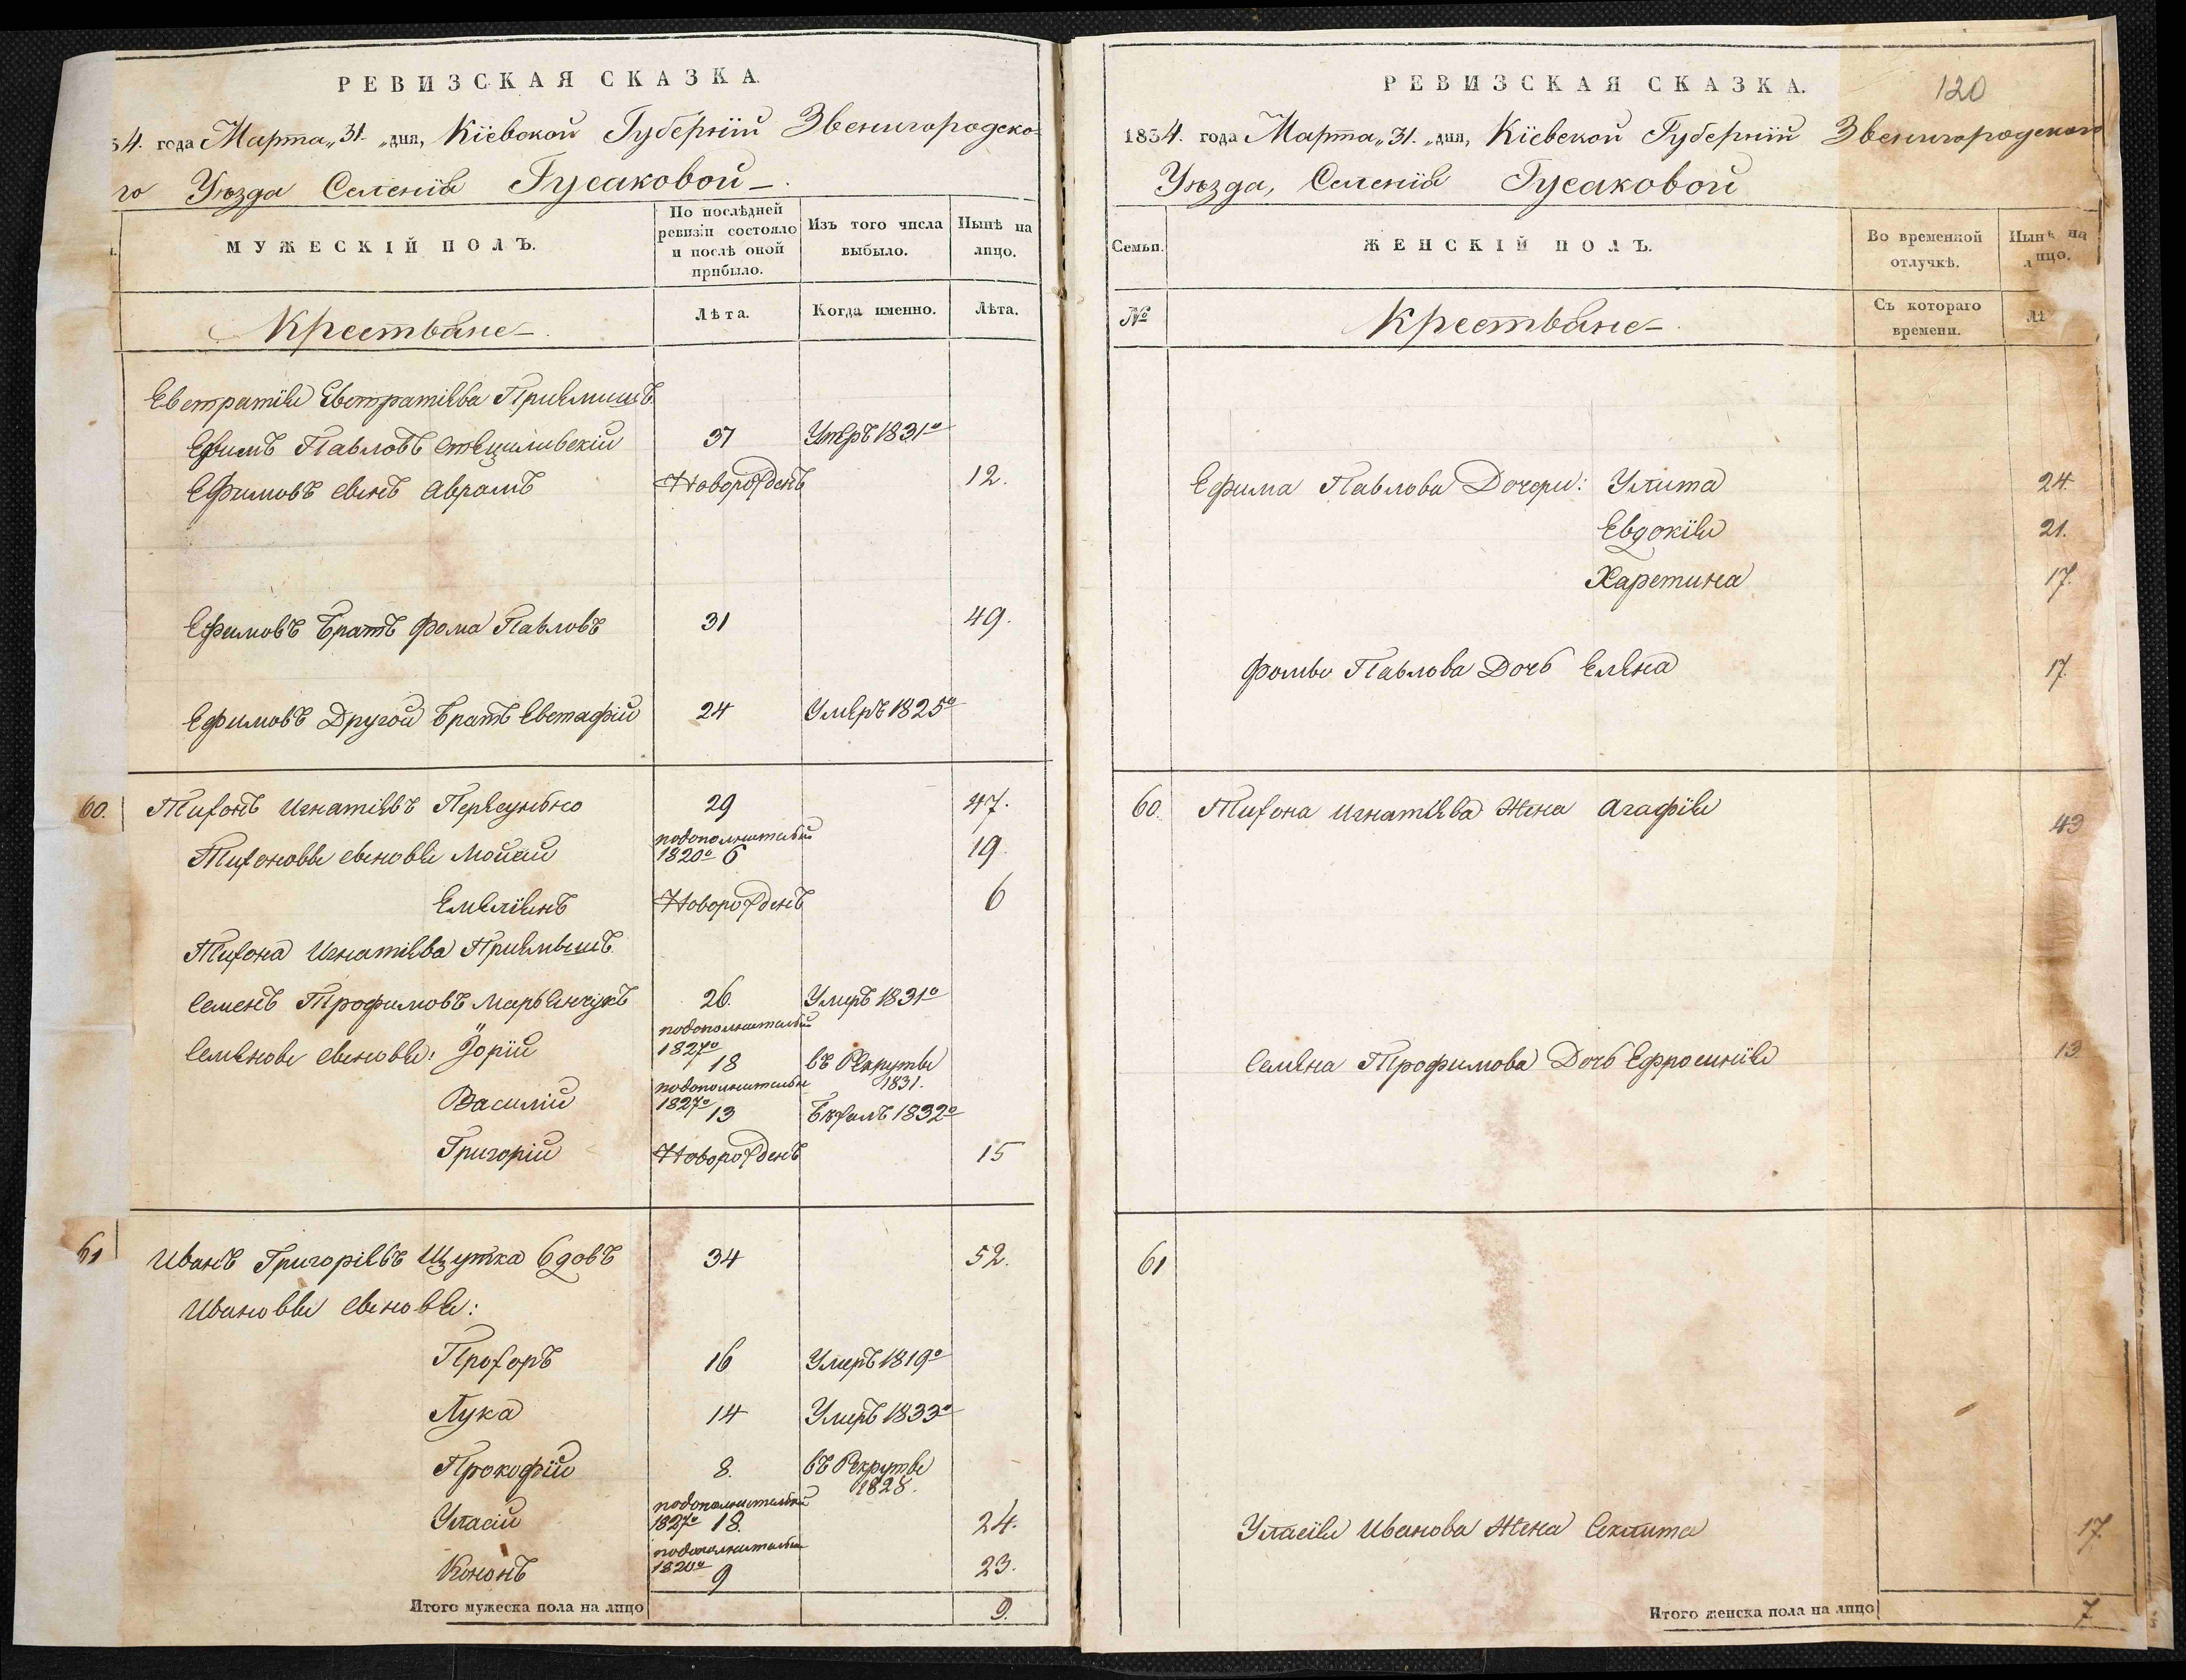 РЕВИЗСКАЯ СКАЗКА.
34. года Марта „31. „дня, Кіевской Губерніи Звенигородско-
го Уѣзда Селенія Гусаковой
МУЖЕСКІЙ ПОЛЪ.
По послѣдней ревизіи состояло и послѣ оной прибыло.
Изъ того числа выбыло.
Нынѣ на лицо.
Крестьяне
Лѣта.
Когда именно.
Лѣта.
Евстратія Евстратіева Пріемишъ
Ефимъ Павловъ 37 Умеръ 1831го
Ефимовъ сынъ Аврамъ Новорожденъ 12.
Ефимовъ Братъ Фома Павловъ 31 49.
Ефимовъ Другой Братъ Евстафій 24 Умеръ 1825го
60. Тихонъ Игнатіевъ 29 47.
Тихоновы сыновья Мойсій подополнительной 1820го 6 19
Емеліянъ Новорожденъ 6
Тихона Игнатіева Пріемышъ
Семенъ Трофимовъ Марьянчукъ 26. Умеръ 1831го
Семеновы сыновья: Юрій подополнительной 1827го 18 въ Рекруты 1831.
Василій подополнительной 1827го 13 Бѣжалъ 1832го
Григорій Новорожденъ 15
61 Иванъ Григоріевъ Щутка Вдовъ 34 52.
Ивановы сыновья:
Прохоръ 16 Умеръ 1819го
Лука 14 Умеръ 1833го
Прокофій 8. въ Рекруты 1828.
Уласій подополнительной 1827го 18. 24.
Кононъ подополнительной 1820го 9 23.
Итого мужеска пола на лицо 9.
120
РЕВИЗСКАЯ СКАЗКА.
1834. года Марта „31. „дня, Кіевской Губерніи Звенигородскаго
Уѣзда, Селенія Гусаковой
Семьи.
ЖЕНСКІЙ ПОЛЪ.
Во временной отлучкѣ.
Нынѣ на лицо.
№
Крестьяне
Съ котораго времени.
Лѣ
Ефима Павлова Дочери: Улита 24.
Евдокія 21.
Харетина 17.
Фомы Павлова Дочь Елена 17.
60. Тихона Игнатіева Жена Агафія 43
Семена Трофимова Дочь Ефросинія 13
61
Уласія Иванова Жена Секлита 17.
Итого женска пола на лицо 7.